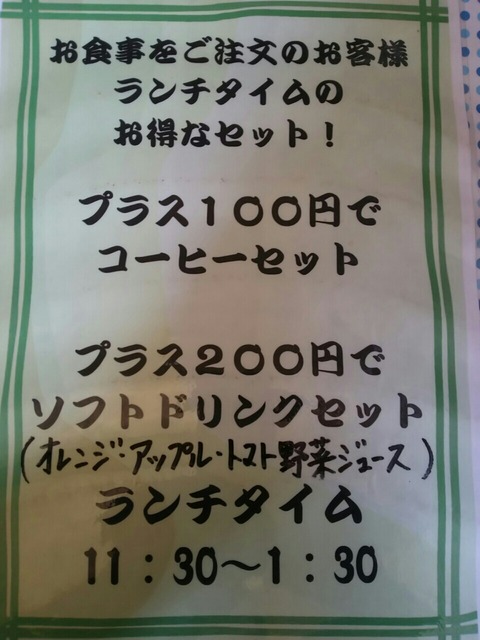 お食事をご注文のお客様
ランチタイムの
お得なセット！
プラス１００円で
コーヒーセット
プラス２００円で
ソフトドリンクセット
(オレンジ・アップル・トマト野菜ジュース)
ランチタイム
11：30～1：30